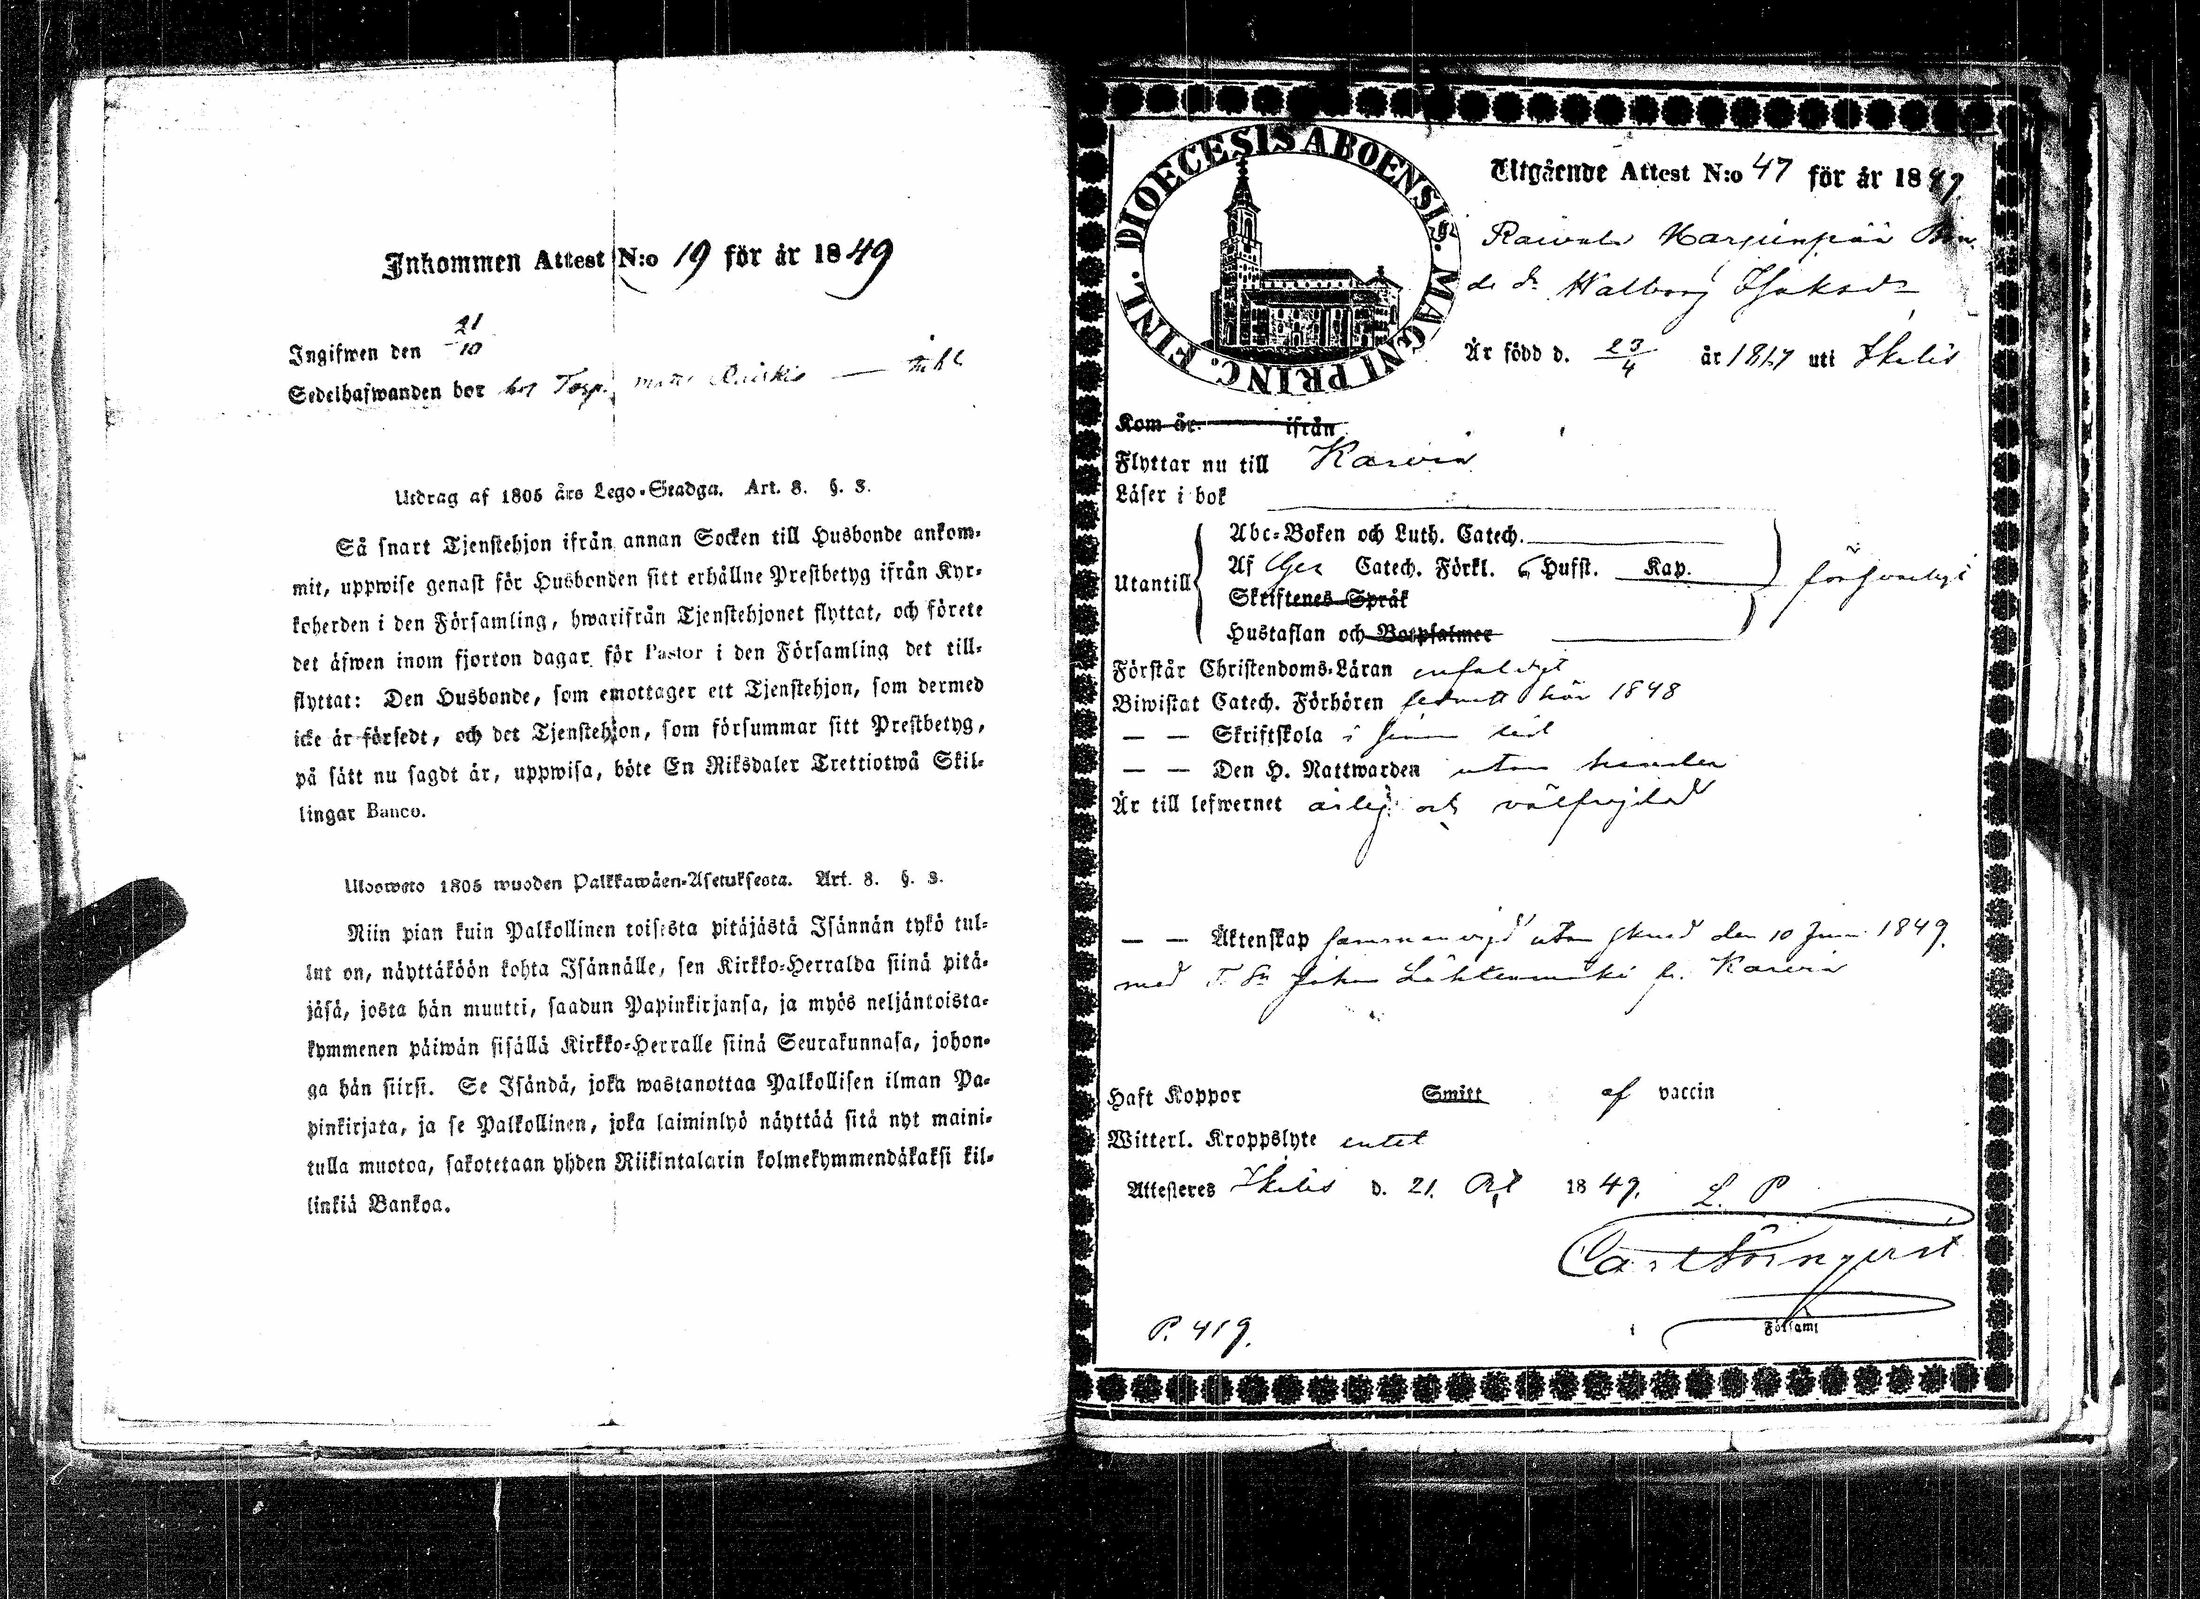 Inkommen Attest N:o 19 för år 1849
Ingifwen den 21/10
Sedelhafwanden bor hos Torp.
Utdrag af 1805 års Lego-Stadga. Art. 8. §. 3.
Så snart Tjenstehjon ifrån annan Socken till Husbonde ankom-
mit, uppwise genast för Husbonden sitt erhållne Prestbetyg ifrån Kyr-
koherden i den Församling, hwarifrån Tjenstehjonet flyttat, och förete
det äfwen inom fjorton dagar för Pastor i den Församling det till-
flyttat: Den Husbonde, som emottager ett Tjenstehjon, som dermed
icke är försedt, och det Tjenstehjon, som försummar sitt Prestbetyg,
på sätt nu sagdt är, uppwisa, böte En Riksdaler Trettiotwå Skil-
lingar Banco.
Uloswoto 1805 wuoden Palkkawäen-Asetuksesta. Art. 8. §. 3.
Niin pian kuin Palkollinen toisesta pitäjästä Isännän tykö tul-
lut on, näyttäköön kohta Isännälle, sen Kirkko-Herralda siinä pitä-
jäsä, josta hän muutti, saadun Papinkirjansa, ja myös neljäntoista-
kymmenen päiwän sisällä Kirkko-Herralle siinä Seurakunnasa, johon-
ga hän siirsi. Se Isändä, joka wastanottaa Palkollisen ilman Pa-
pinkirjata, ja se Palkollinen, joka laiminlyö näyttää sitä nyt maini-
tulla muotoa, sakotetaan yhden Riikintalarin kolmekymmendäkaksi kil-
linkiä Bankoa.
DIOECESIS ABOENSIS. MAGNI PRINC. FINL.
Utgående Attest N:o 47 för år 1849.
Raivala Karjenpää Bon
de dr Walborg Isaksdr
Är född d. 23/4 år 1817 uti Ikalis
Kom år ifrån
Flyttar nu till Karvia
Läser i bok
Utantill
Abc-Boken och Luth. Catech.
Af Catech. Förkl. 6 Hufst. Kap.
Skriftenes Språk
Hustaflan och Botpsalmer
försvarligt
Förstår Christendoms-Läran enfaldigt
Biwistat Catech. Förhören sednast här 1848
— — Skriftskola i sinom tid
— — Den H. Nattwarden utan hinder
Är till lefwernet ärlig och välfrejdad
— — Äktenskap sammanvigd utom den 10 Juni 1849.
med T. Sn Johan Lähteenmäki fr. Karvia
Haft Koppor Smitt af vaccin
Witterl. Kroppslyte intet
Attesteres Ikalis d. 21. Oct 1849. L. P
Carl Törnqvist
P. 419. i Församl